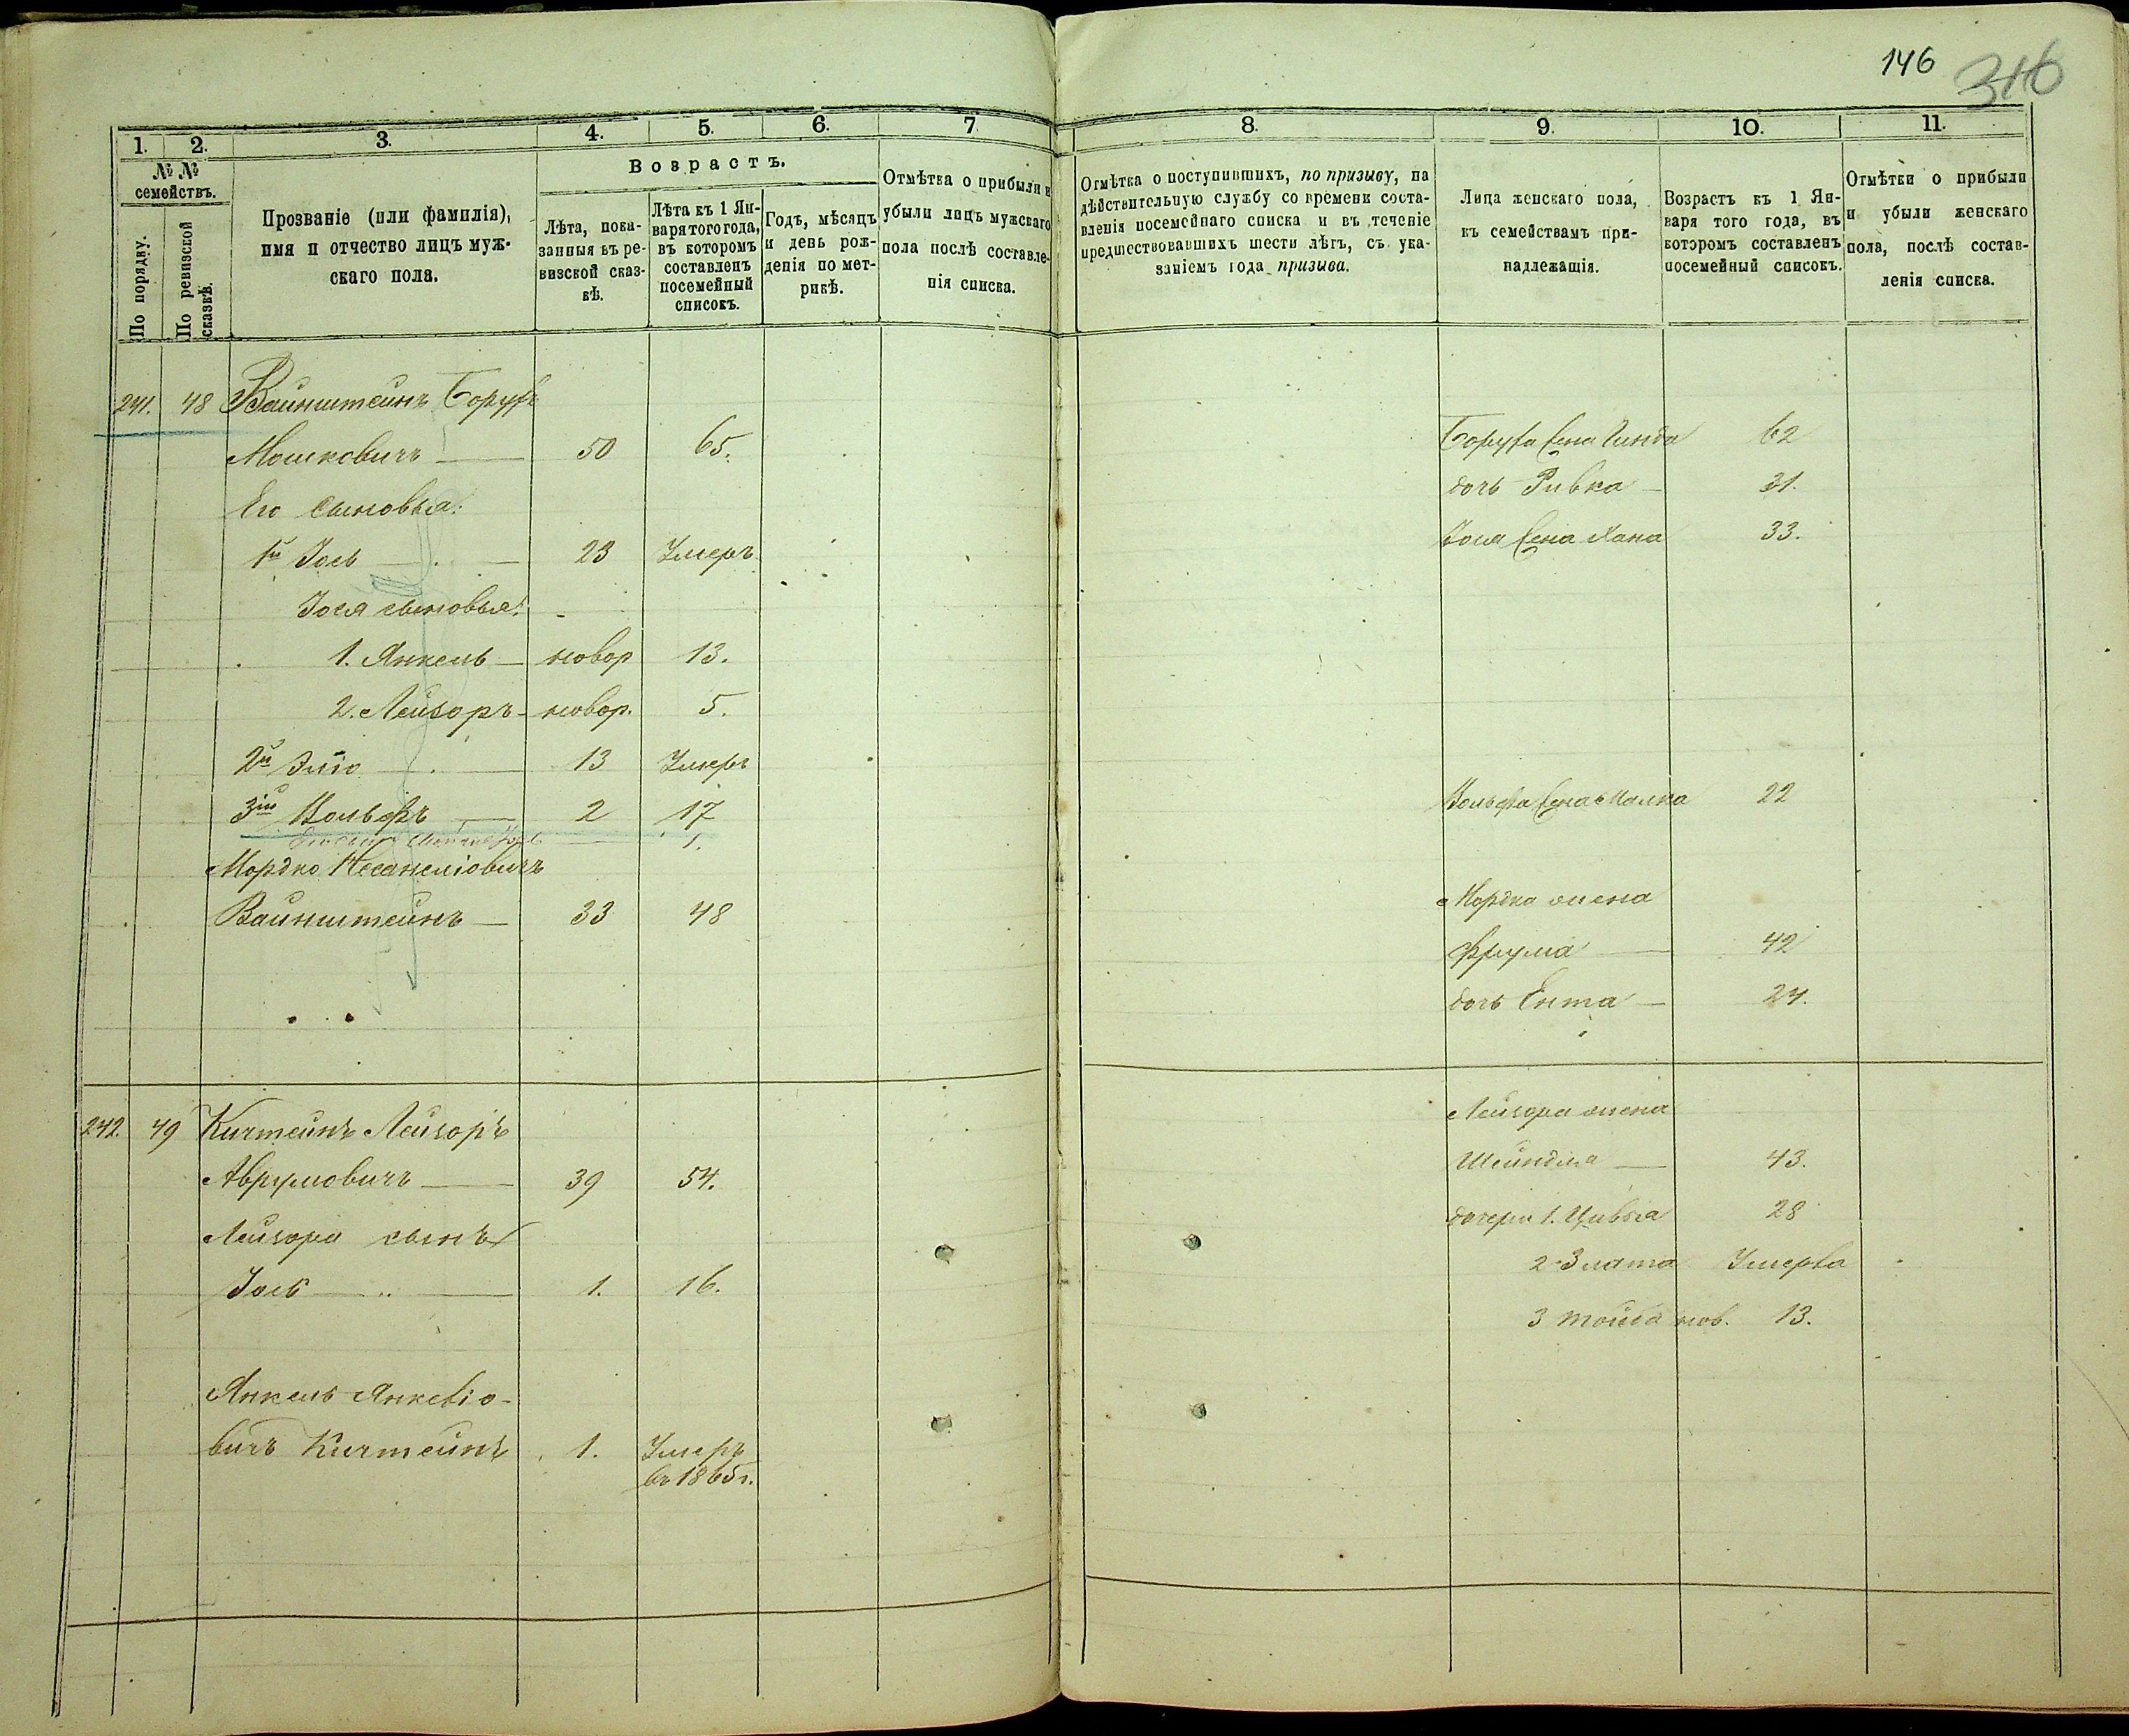 146 316
1. 2. 3. 4. 5. 6. 7. 8. 9. 10. 11.
№ № семействъ.
По порядку.
По ревизской сказкѣ.
Прозваніе (или фамилія),
имя и отчество лицъ муж-
скаго пола.
Возрастъ.
Лѣта, пока-
занныя въ ре-
визской сказ-
кѣ.
Лѣта къ 1 Ян-
варя того года,
въ которомъ
составленъ
посемейный
списокъ.
Годъ, мѣсяцъ
и день рож-
денія по мет-
рикѣ.
Отмѣтка о прибыли и
убыли лицъ мужскаго
пола послѣ составле-
нія списка.
Отмѣтка о поступившихъ, по призыву, на
дѣйствительную службу со времени соста-
вленія посемейнаго списка и въ теченіе
предшествовавшихъ шести лѣтъ, съ ука-
заніемъ года призыва.
Лица женскаго пола,
къ семействамъ при-
надлежащія.
Возрастъ къ 1 Ян-
варя того года, въ
которомъ составленъ
посемейный списокъ.
Отмѣтки о прибыли
и убыли женскаго
пола, послѣ состав-
ленія списка.
241. 48 Вайнштейнъ Борухъ
Мошковичъ — 50 65.
Его сыновья:
1й Іось — 23 Умеръ
Іося сыновья:
1. Янкель — новор 13.
2. Лейзоръ - новор. 5.
2й — 13 Умеръ
3ій Вольфъ — 2 17
1.
Мордко
Вайнштейнъ — 33 48
Боруха жена 62
дочь Ривка — 31.
Іося жена Хана 33.
Вольфа жена Малка 22
Мордка жена
Фрума — 42
дочь Ента — 24.
242. 49 Китейнъ Лейзоръ
Аврумовичъ — 39 54.
Лейзора сынъ
Іось — 1. 16.
Янкель Янкеліо-
вичъ Китейнъ 1. Умеръ
въ 1865 г.
Лейзора жена
Шейндля — 43.
дочери 1. Цивья 28
2. Злата Умерла
3 Тойба нов. 13.